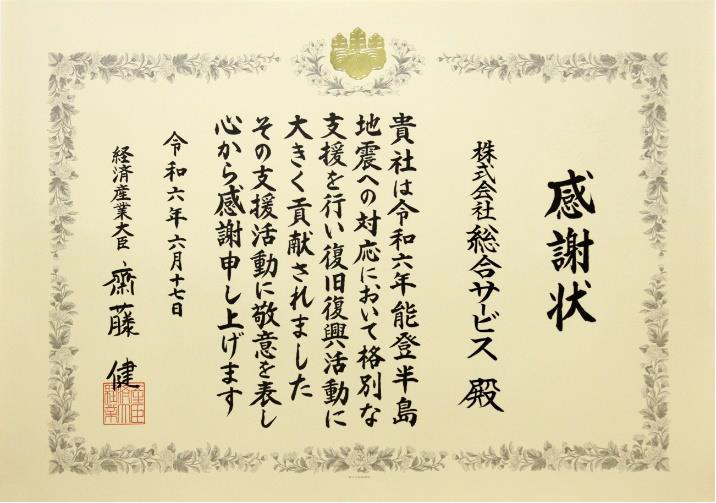 感謝状
株式会社 総合サービス 殿
貴社は令和六年能登半島
地震への対応において格別な
支援を行い復旧復興活動に
大きく貢献されました
その支援活動に敬意を表し
心から感謝申し上げます
令和六年六月十七日
経済産業大臣 齋藤 健